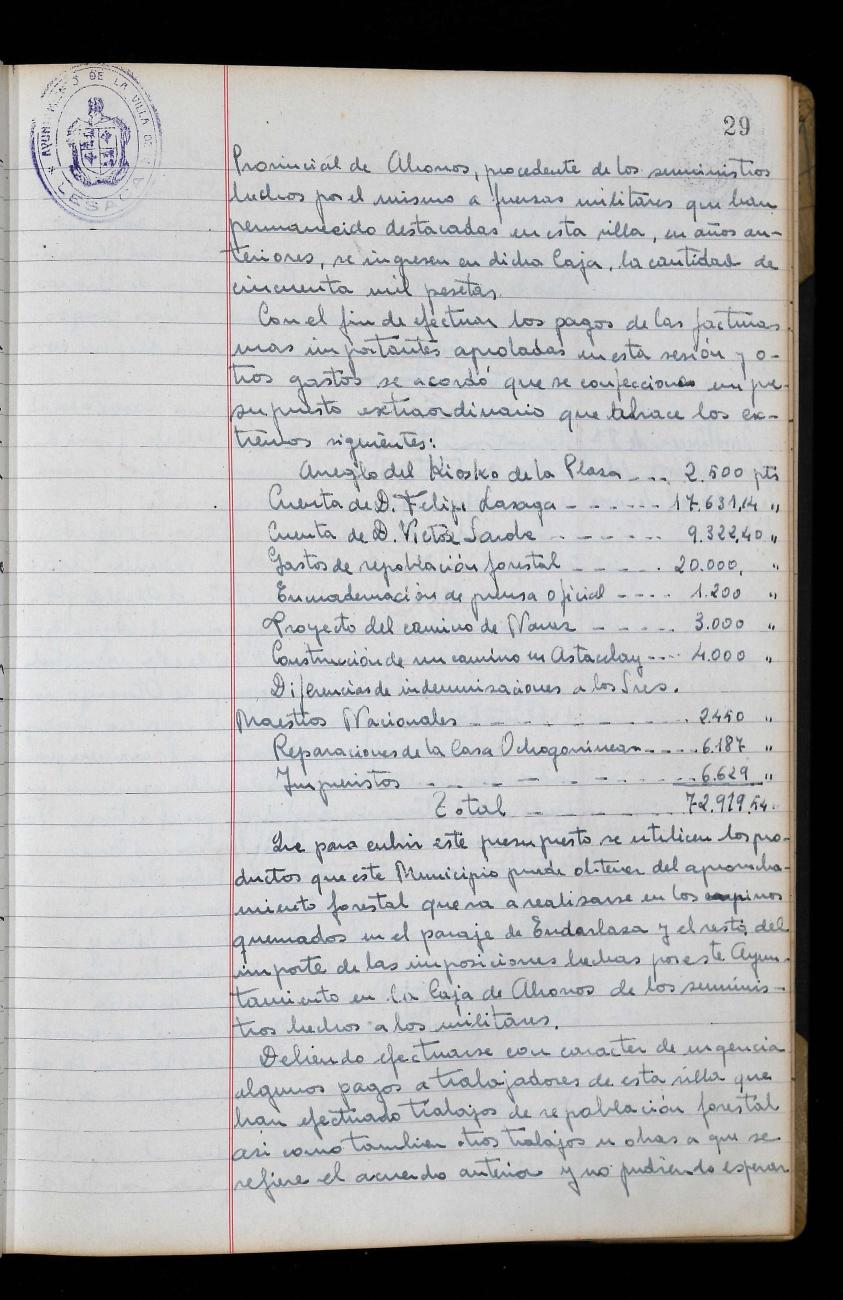 29
AYUNTAMIENTO DE LA VILLA DE
LESACA
Provincial de Ahorros, procedente de los suministros
hechos por el mismo a fuerzas militares que han
permanecido destacadas en esta villa, en años an-
teriores, se ingresen en dicha Caja, la cantidad de
cincuenta mil pesetas.
Con el fin de efectuar los pagos de las facturas
mas importantes aprobadas en esta sesión y o-
tros gastos se acordó que se confeccione un pre-
supuesto extraordinario que abrace los ex-
tremos siguientes:
Arreglo del Kiosko de la Plaza --- 2.500 pts
Cuenta de D. Felipe Lasaga ------ 17.631,14 "
Cuenta de D. Victor Sarole ------ 9.322,40 "
Gastos de repoblación forestal ----- 20.000, "
Enmadernación de prensa oficial ---- 1.200 "
Proyecto del camino de Navaz ----- 3.000 "
Construción de un camino en Astacelay ---- 4.000 "
Diferencias de indemnisaciones a los Sres.
Maestros Nacionales --------- 2.450 "
Reparaciones de la Casa ---- 6.187 "
Imprevistos -------- 6.629 "
Total ------ 72.919,54.
Que para cubrir este presupuesto se utilicen los pro-
ductos que este Municipio puede obtener del aprovecha-
miento forestal que va a realizarse en los pinos
quemados en el paraje de Endarlasa y el resto del
importe de las imposiciones hechas por este Ayun-
tamiento en la Caja de Ahorros de los suminis-
tros hechos a los militares.
Debiendo efectuarse con caracter de urgencia
algunos pagos a trabajadores de esta villa que
han efectuado trabajos de repoblación forestal
asi como tambien otros trabajos u obras a que se
refiere el acuerdo anterior y no pudiendo esperar